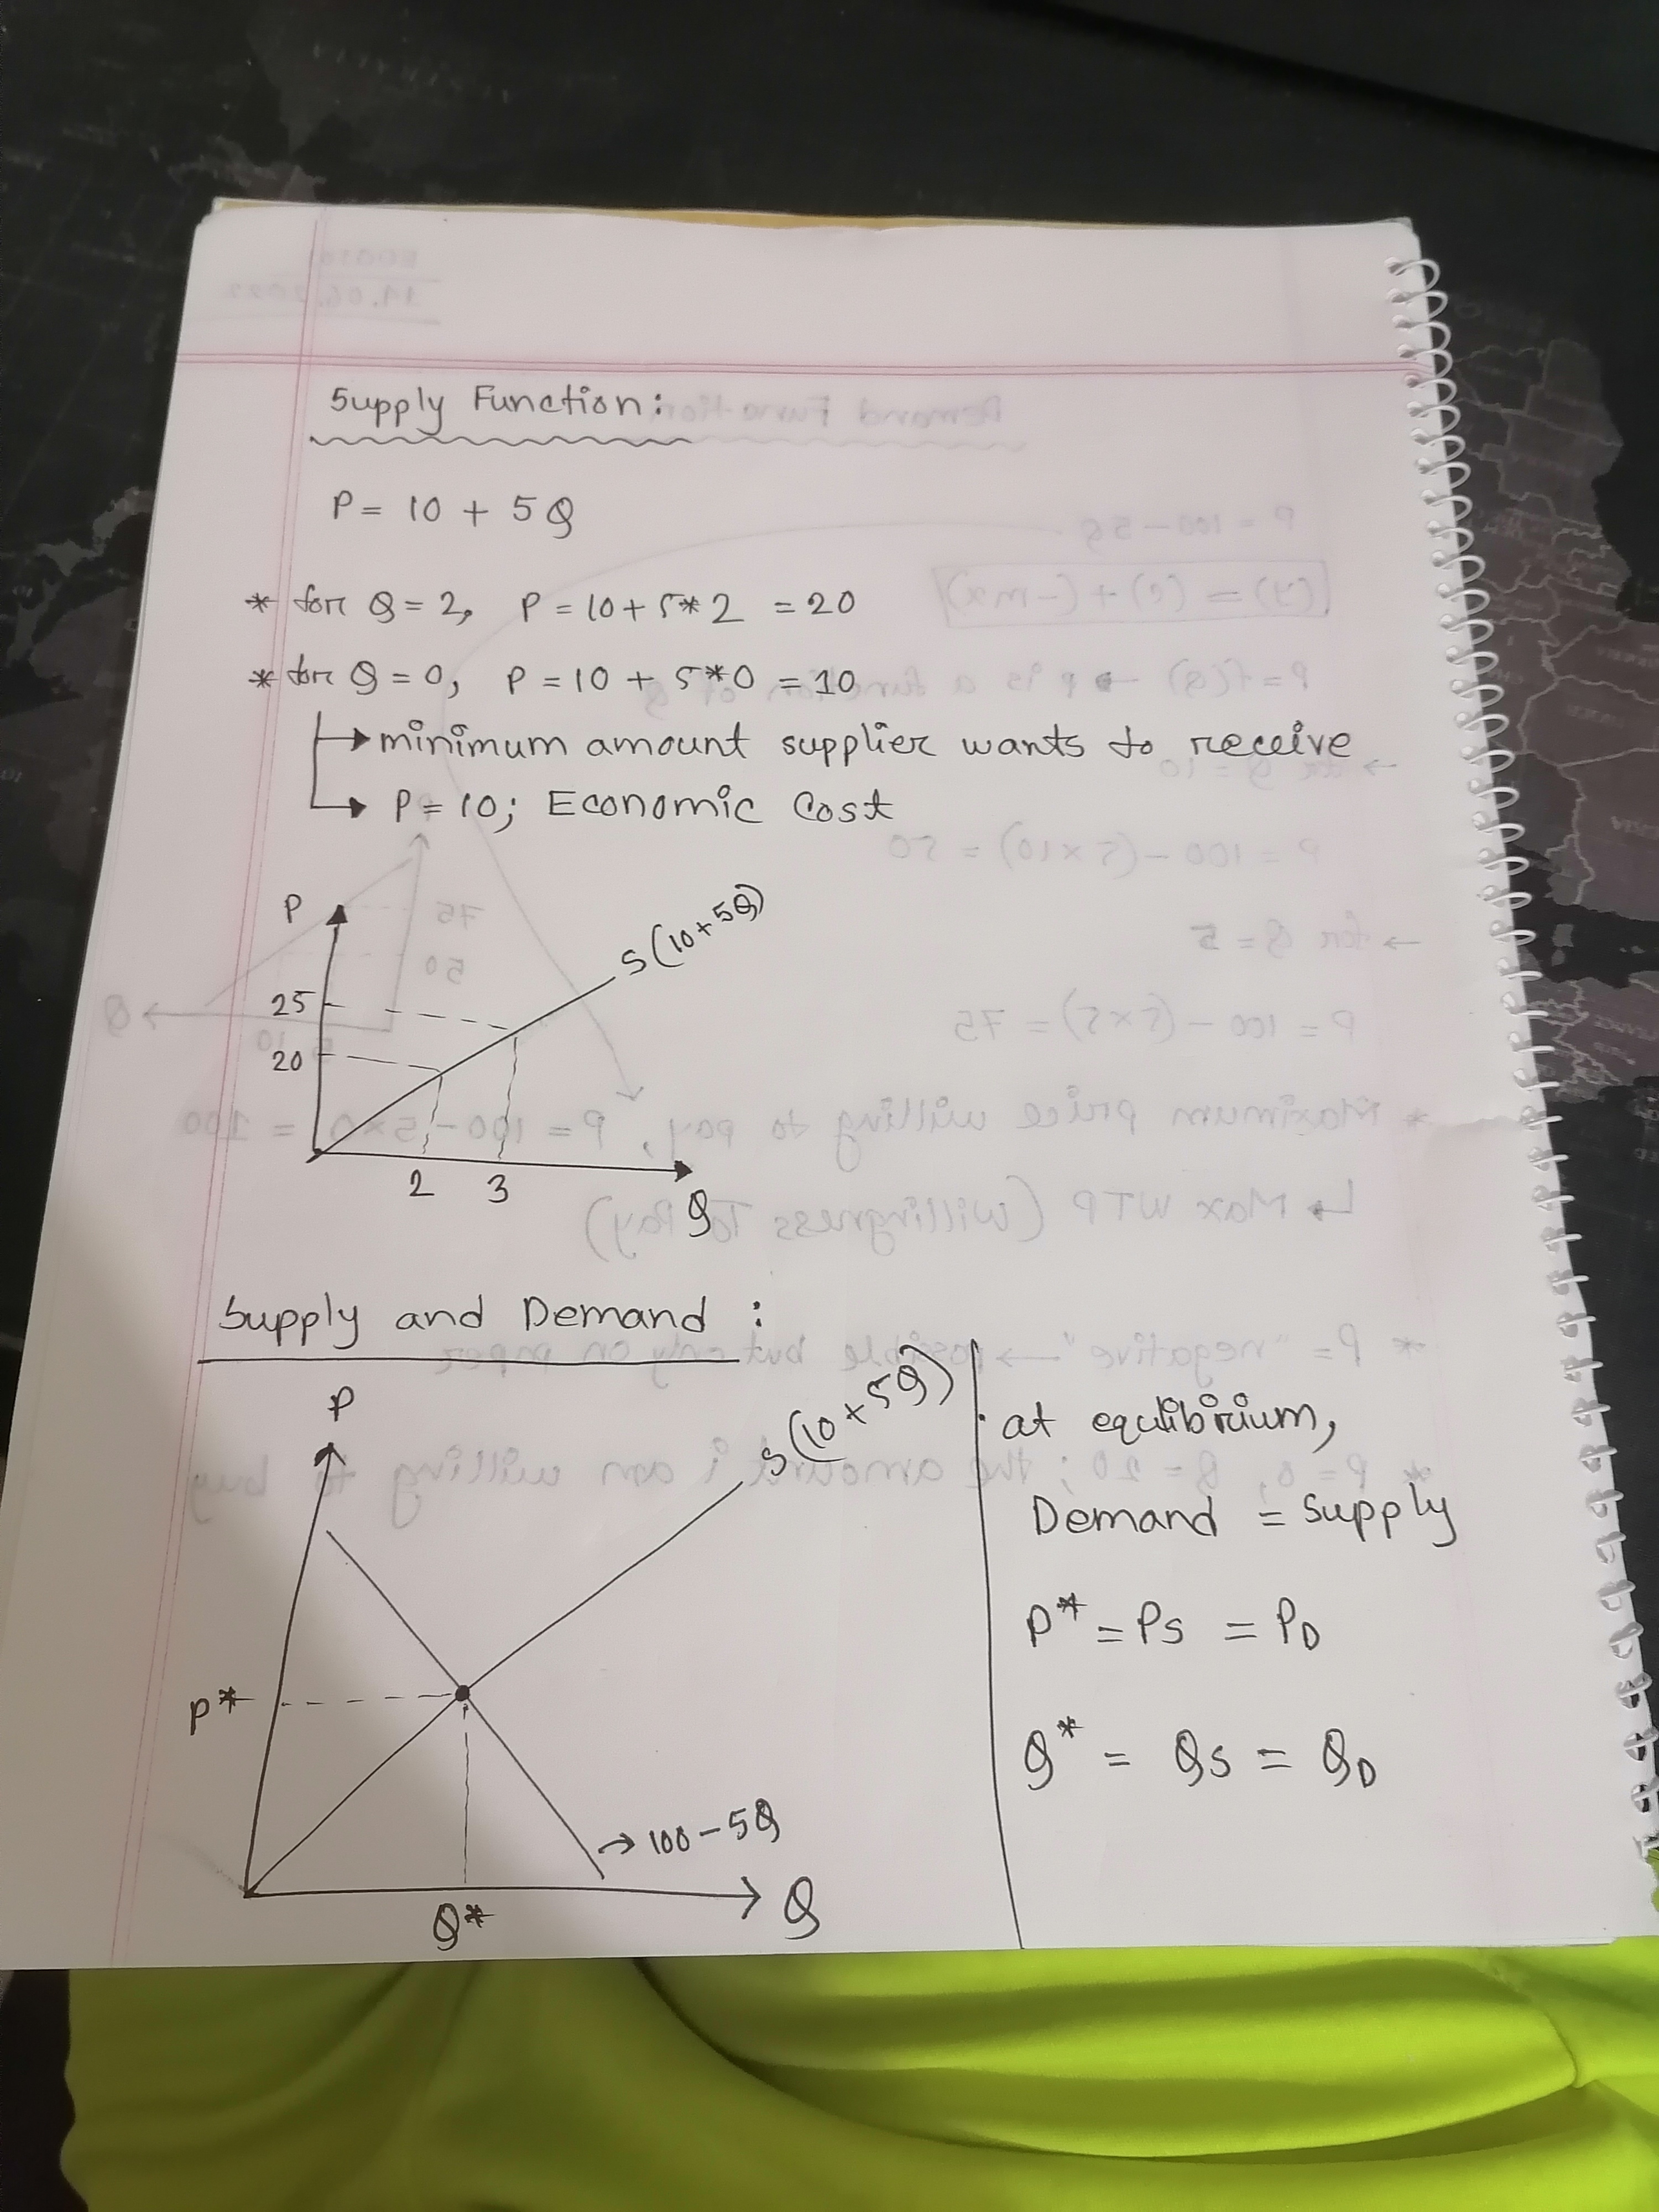 Supply Function:
P = 10 + 5Q
* for Q = 2, P = 10 + 5*2 = 20
* for Q = 0, P = 10 + 5*0 = 10
→ minimum amount supplier wants to receive
→ P = 10; Economic Cost
P
S(10+5Q)
25
20
2 3
Q
Supply and Demand :
P
S(10+5Q)
P*
→ 100-5Q
Q*
Q
at equlibrium,
Demand = Supply
P* = PS = PD
Q* = QS = QD